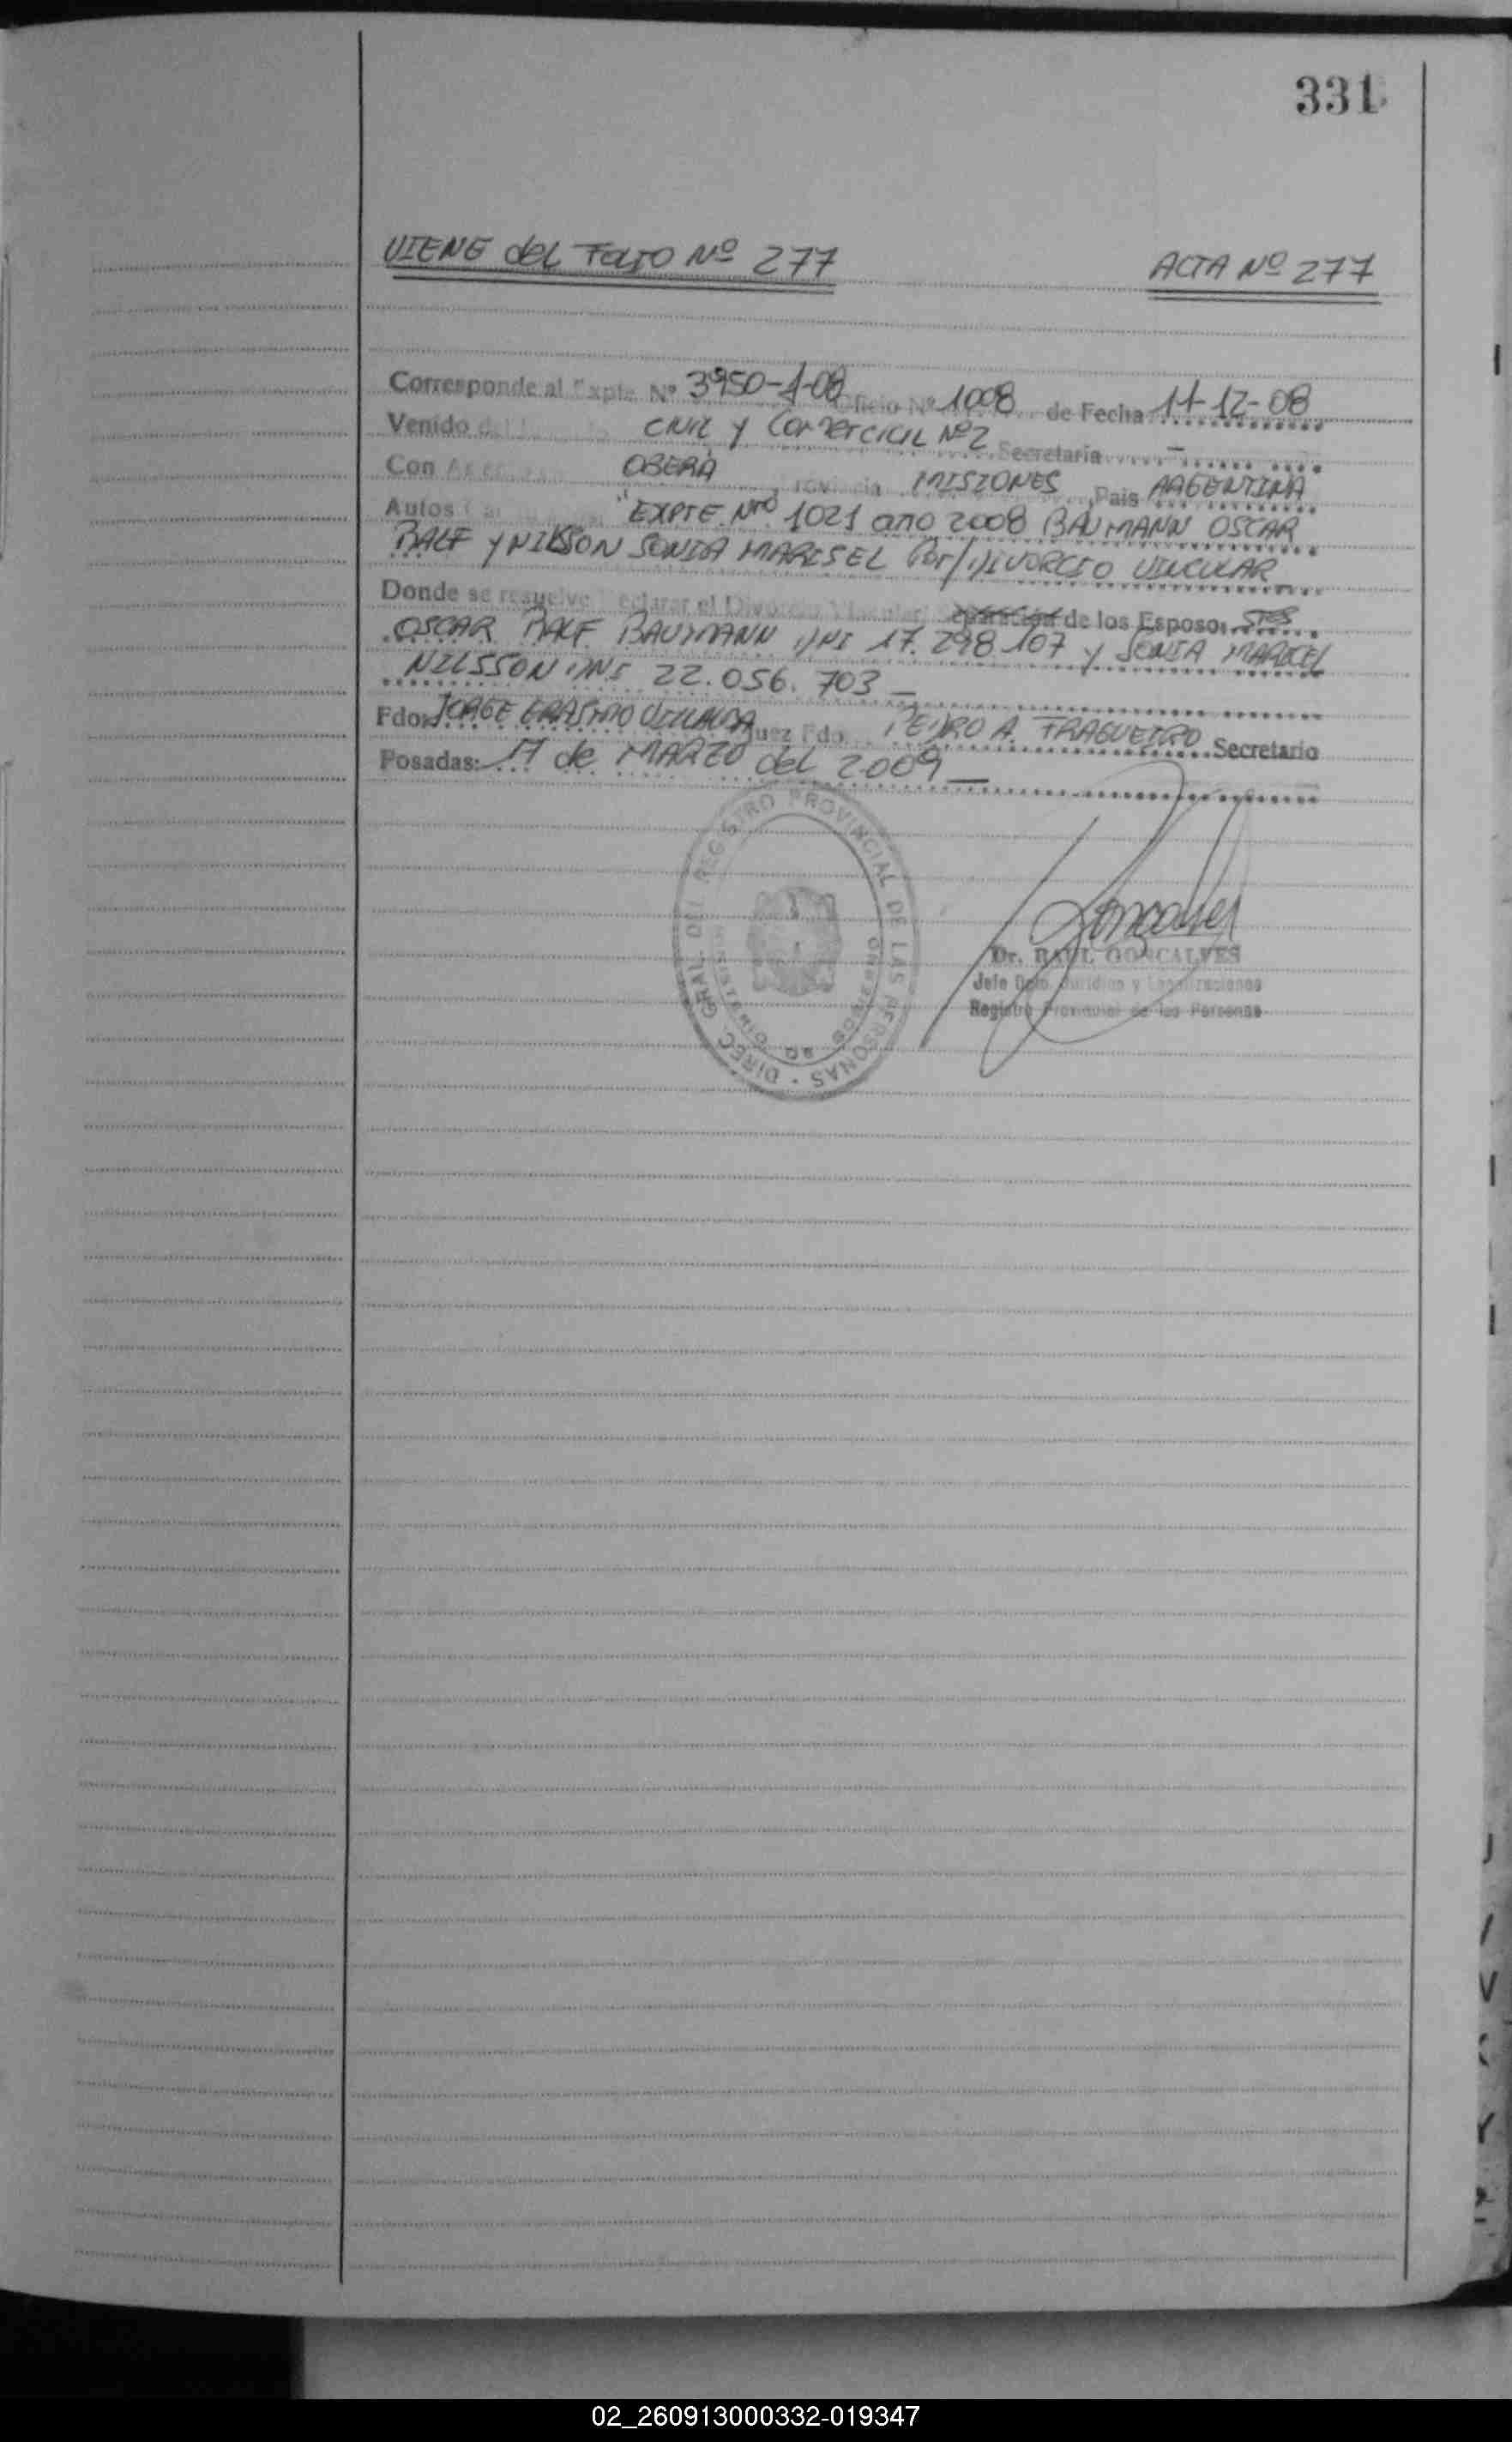 331
VIENE del FOLIO Nº 277
ACTA Nº 277
Corresponde al Expte. Nº 3950-1-08 Oficio Nº 1008 de Fecha 11-12-08
Venido del CIVIL Y COMERCIAL Nº 2 Secretaria -
Con OBERÁ Provincia MISIONES, Pais ARGENTINA
Autos "EXPTE. Nro 1021 año 2008 BAUMANN OSCAR
RALF Y NILSSON SONIA MARISEL Por/DIVORCIO VINCULAR
Donde se resuelve Declarar el Divorcio Vincular/ Separación de los Esposos
OSCAR RALF BAUMANN DNI 17.298.107 y SONIA MARICEL
NILSSON DNI 22.056.703 -
Fdo: JORGE ERASMO VILLALBA Juez Fdo. PEDRO A. FRAGUEIRO Secretario
Posadas: de MARZO del 2009
DIREC. GRAL. DEL REGISTRO PROVINCIAL DE LAS PERSONAS
Dr. RAUL GONCALVES
Jefe Dpto. Juridico y Legalizaciones
Registro Provincial de las Personas
02_260913000332-019347